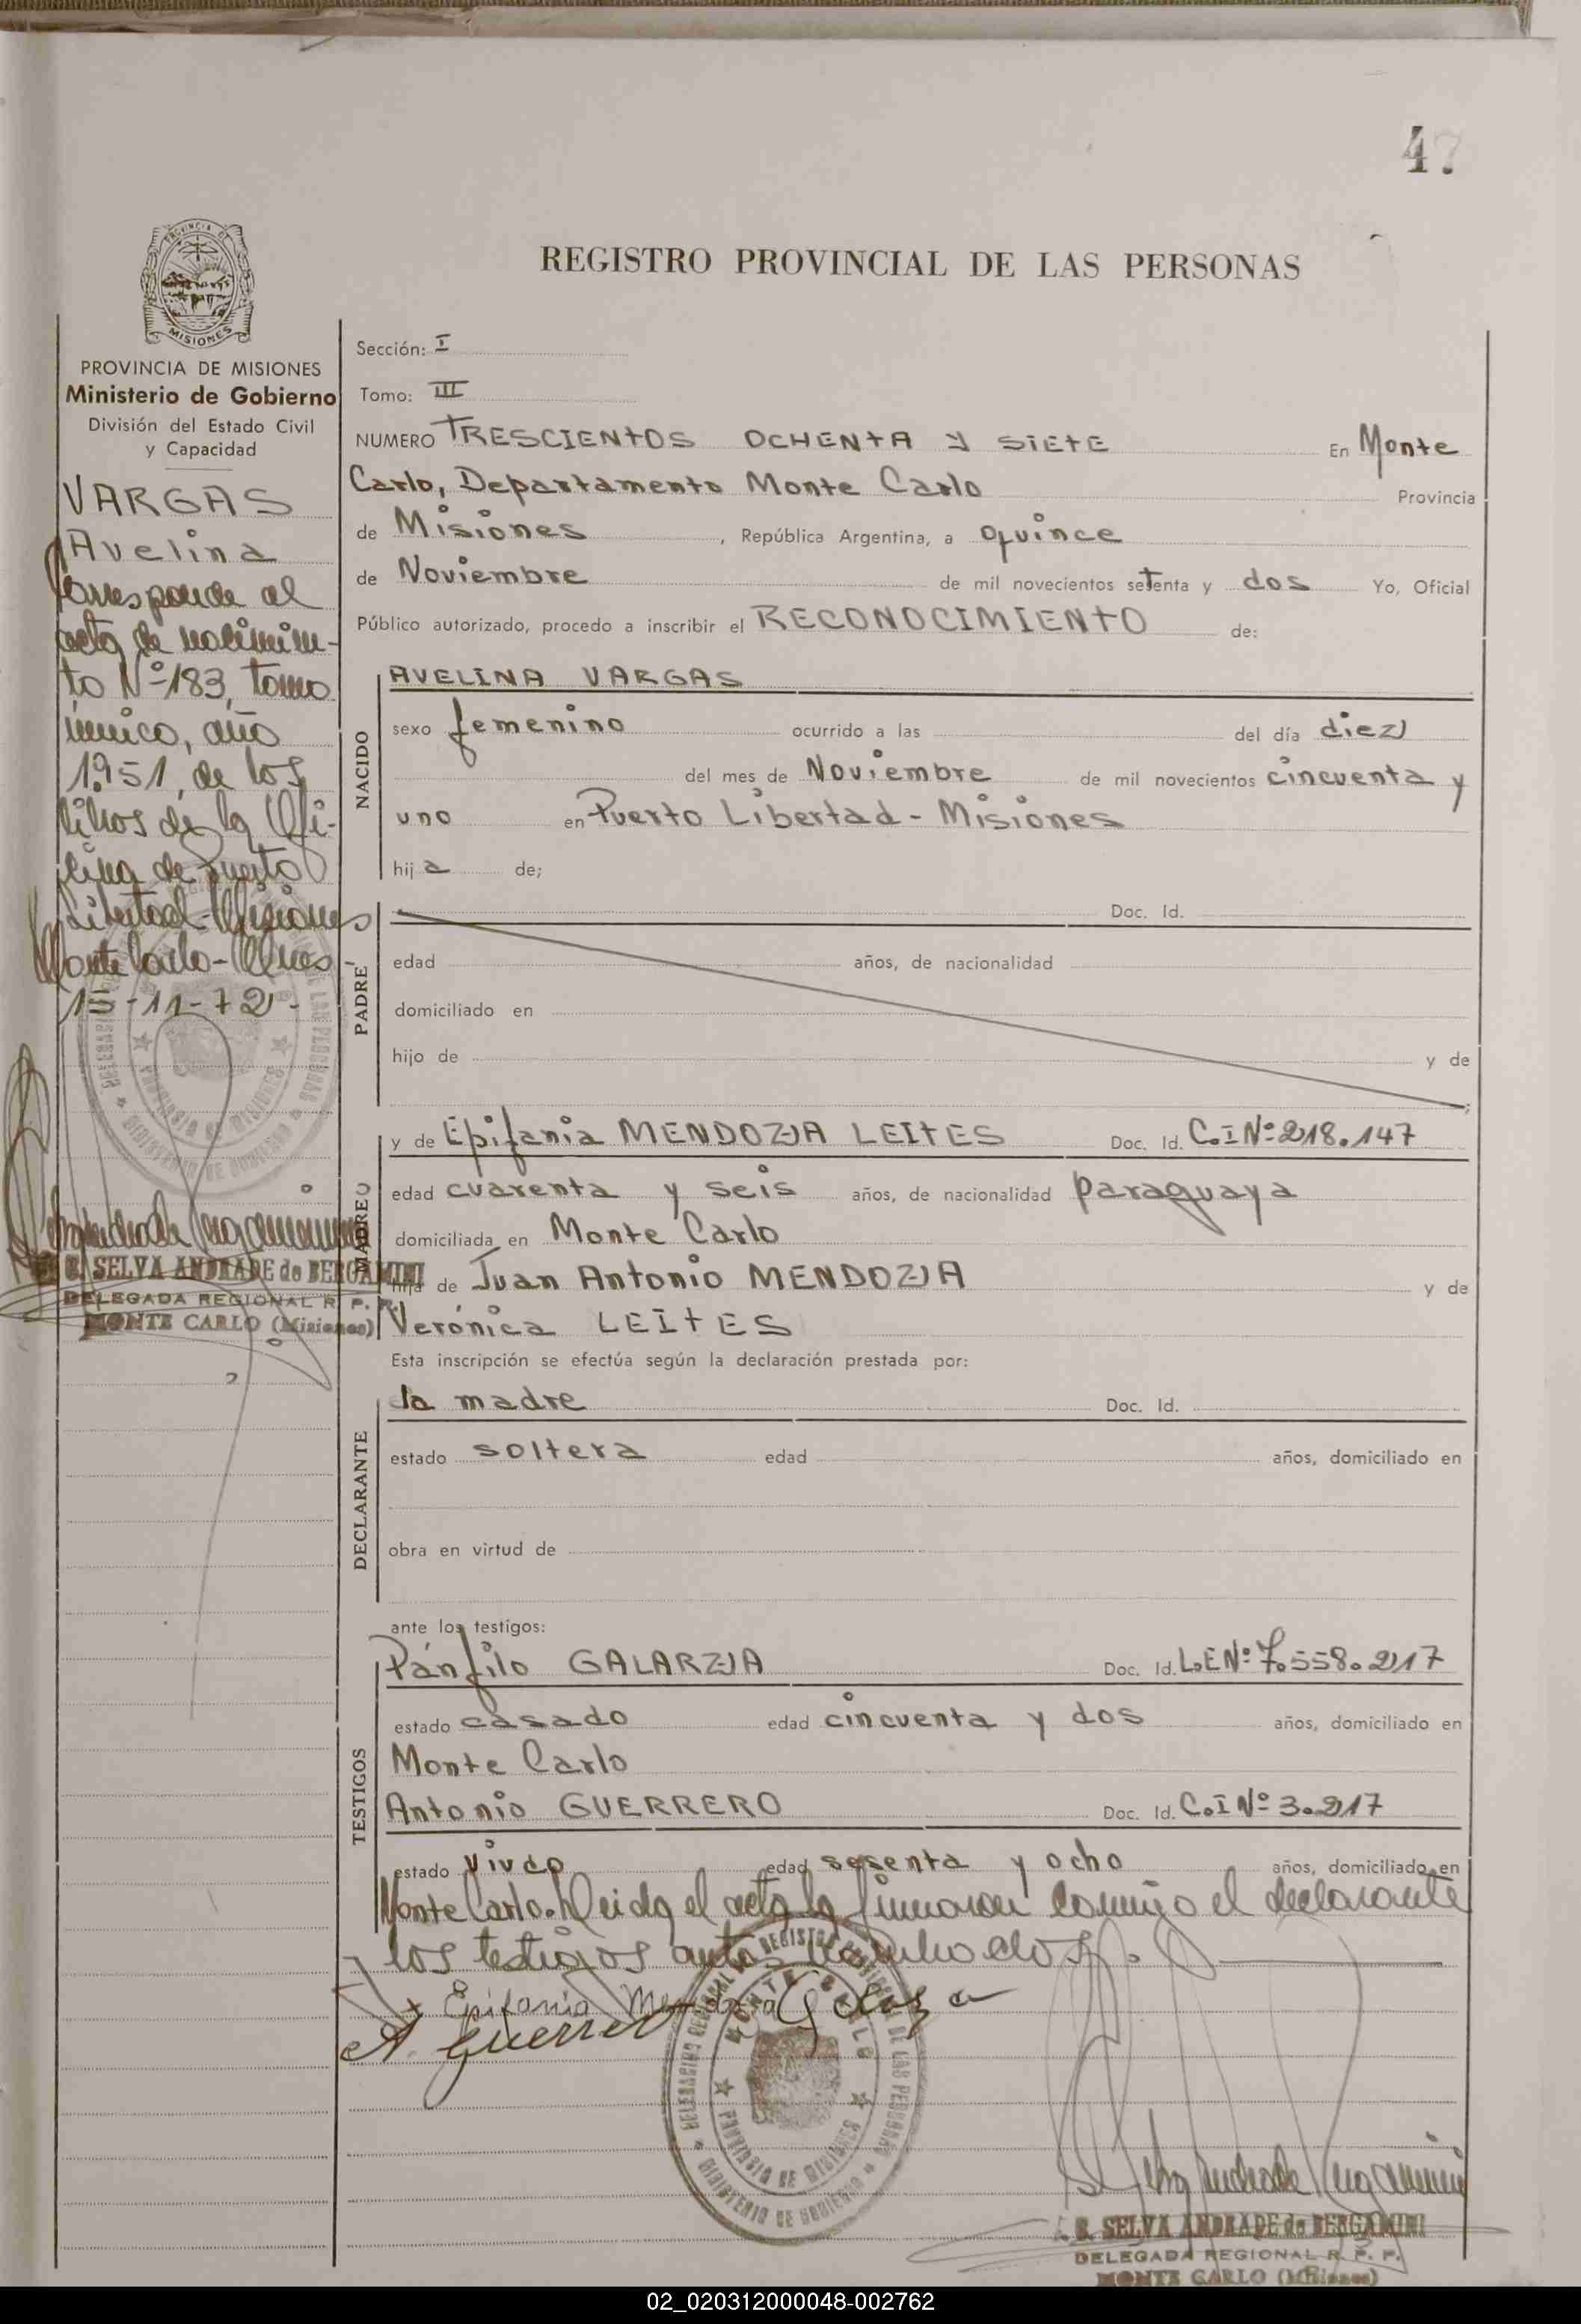 47
REGISTRO PROVINCIAL DE LAS PERSONAS
PROVINCIA DE
MISIONES
PROVINCIA DE MISIONES
Ministerio de Gobierno
División del Estado Civil
y Capacidad
VARGAS
Avelina
Corresponde al
acta de nacimien-
to Nº 183, tomo
único, año
1951, de los
libros de la Ofi-
cina de Puerto
Libertad - Misiones
Monte Carlo - Mnes
15-11-72 -
B. SELVA ANDRADE de BERGAMINI
DELEGADA REGIONAL R. P. P.
MONTE CARLO (Misiones)
Sección: I
Tomo: III
NUMERO TRESCIENTOS OCHENTA Y SIETE En Monte
Carlo, Departamento Monte Carlo Provincia
de Misiones, República Argentina, a quince
de Noviembre de mil novecientos setenta y dos Yo, Oficial
Público autorizado, procedo a inscribir el RECONOCIMIENTO de:
NACIDO
AVELINA VARGAS
sexo femenino ocurrido a las del día diez
del mes de Noviembre de mil novecientos cincuenta y
uno en Puerto Libertad - Misiones
hija de;
PADRE
Doc. Id.
edad años, de nacionalidad
domiciliado en
hijo de y de
;
MADRE
y de Epifania MENDOZA LEITES Doc. Id. C.I Nº 218.147
edad cuarenta y seis años, de nacionalidad paraguaya
domiciliada en Monte Carlo
hija de Juan Antonio MENDOZA y de
Verónica LEITES
Esta inscripción se efectúa según la declaración prestada por:
DECLARANTE
la madre Doc. Id.
estado soltera edad años, domiciliado en
obra en virtud de
ante los testigos:
TESTIGOS
Pánfilo GALARZA Doc. Id. L.E Nº 7.558.217
estado casado edad cincuenta y dos años, domiciliado en
Monte Carlo
Antonio GUERRERO Doc. Id. C.I Nº 3.217
estado viudo edad sesenta y ocho años, domiciliado en
Monte Carlo. Leida el acta la firmaron conmigo el declarante
los testigos antes nombrados.
Epifania Mendoza
A. Guerrero
REGISTRO PROVINCIAL DE LAS PERSONAS
MONTE CARLO
PROVINCIA DE MISIONES
MINISTERIO DE GOBIERNO
B. SELVA ANDRADE de BERGAMINI
DELEGADA REGIONAL R. P. P.
MONTE CARLO (Misiones)
02_020312000048-002762